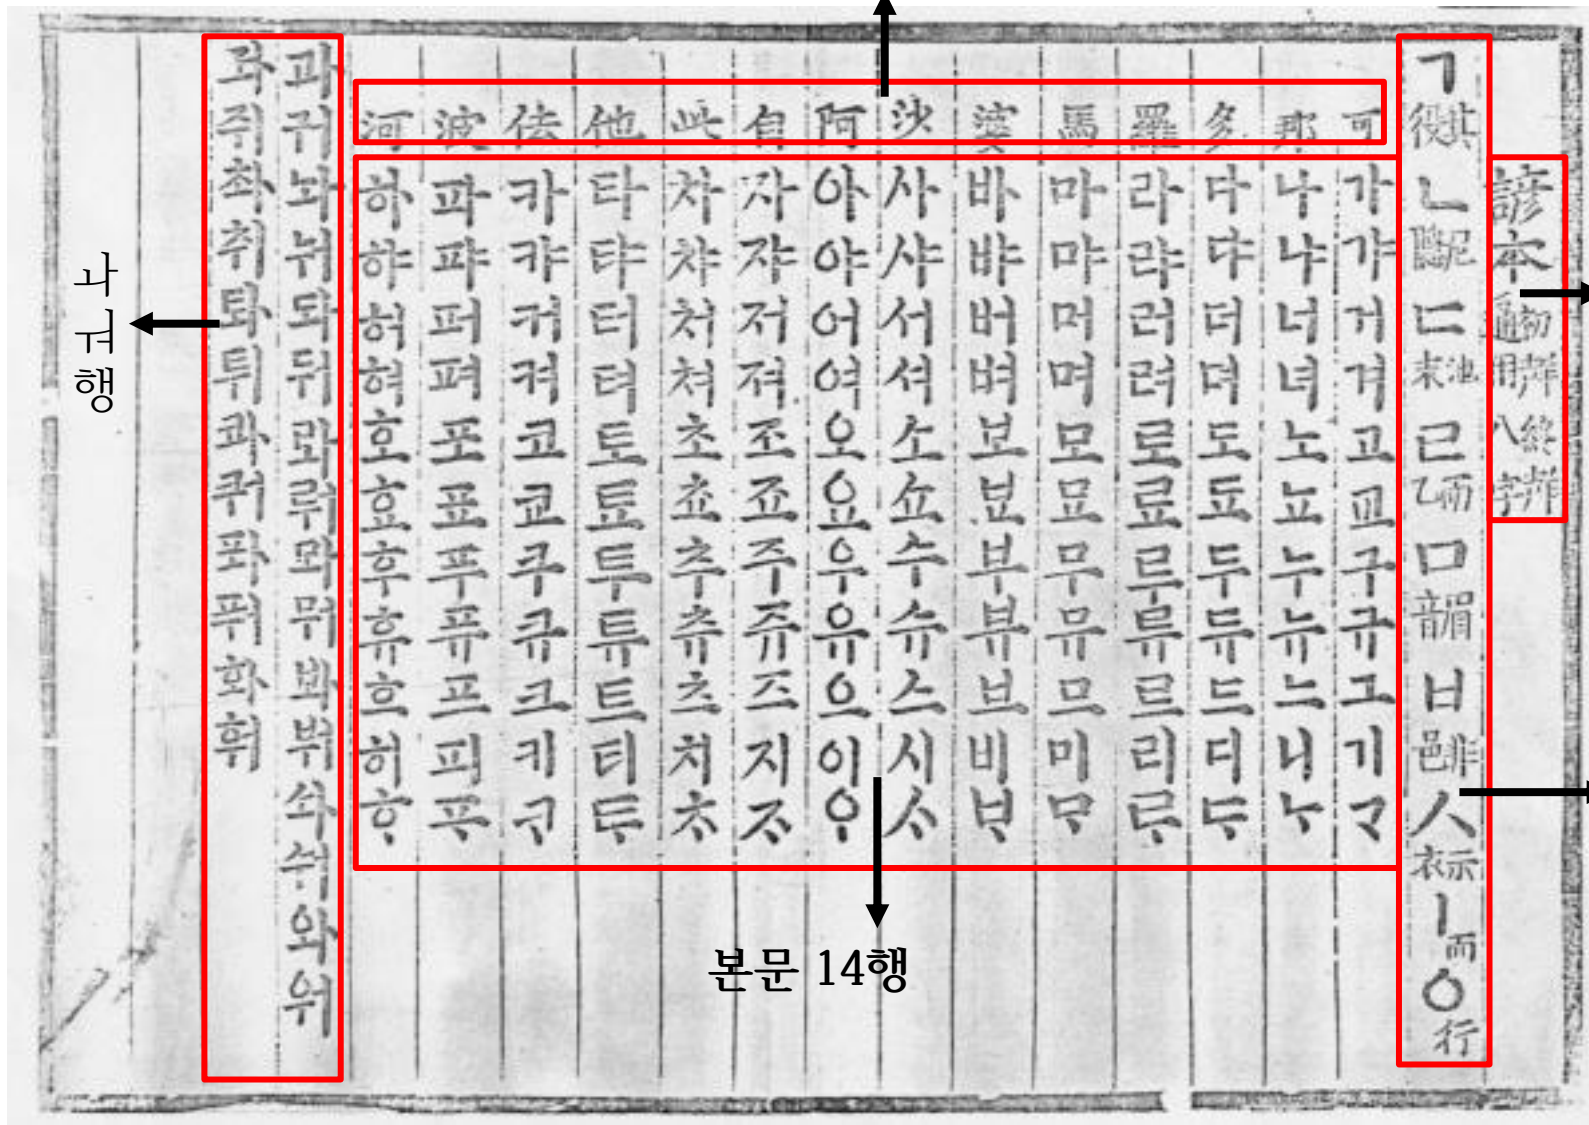 諺本 初聲終聲通用八字
ㄱ 其役 ㄴ 尼隱 ㄷ 池末 ㄹ 而乙 ㅁ 眉音 ㅂ 非邑 ㅅ 示衣 ㅣ 而 ㅇ 行
可 가 갸 거 겨 고 교 구 규 그 기 ᄀᆞ
那 나 냐 너 녀 노 뇨 누 뉴 느 니 ᄂᆞ
多 다 댜 더 뎌 도 됴 두 듀 드 디 ᄃᆞ
羅 라 랴 러 려 로 료 루 류 르 리 ᄅᆞ
馬 마 먀 머 며 모 묘 무 뮤 므 미 ᄆᆞ
婆 바 뱌 버 벼 보 뵤 부 뷰 브 비 ᄇᆞ
沙 사 샤 서 셔 소 쇼 수 슈 스 시 ᄉᆞ
阿 아 야 어 여 오 요 우 유 으 이 ᄋᆞ
自 자 쟈 저 져 조 죠 주 쥬 즈 지 ᄌᆞ
此 차 챠 처 쳐 초 쵸 추 츄 츠 치 ᄎᆞ
他 타 탸 터 텨 토 툐 투 튜 트 티 ᄐᆞ
佉 카 캬 커 켜 코 쿄 쿠 큐 크 키 ᄏᆞ
波 파 퍄 퍼 펴 포 표 푸 퓨 프 피 ᄑᆞ
河 하 햐 허 혀 호 효 후 휴 흐 히 ᄒᆞ
과 궈 놔 눠 돠 둬 롸 뤄 뫄 뭐 봐 붜 솨 숴 와 워
좌 줘 촤 춰 톼 퉈 콰 쿼 퐈 풔 화 훠
ㅘ
ㅝ
행
본문 14행